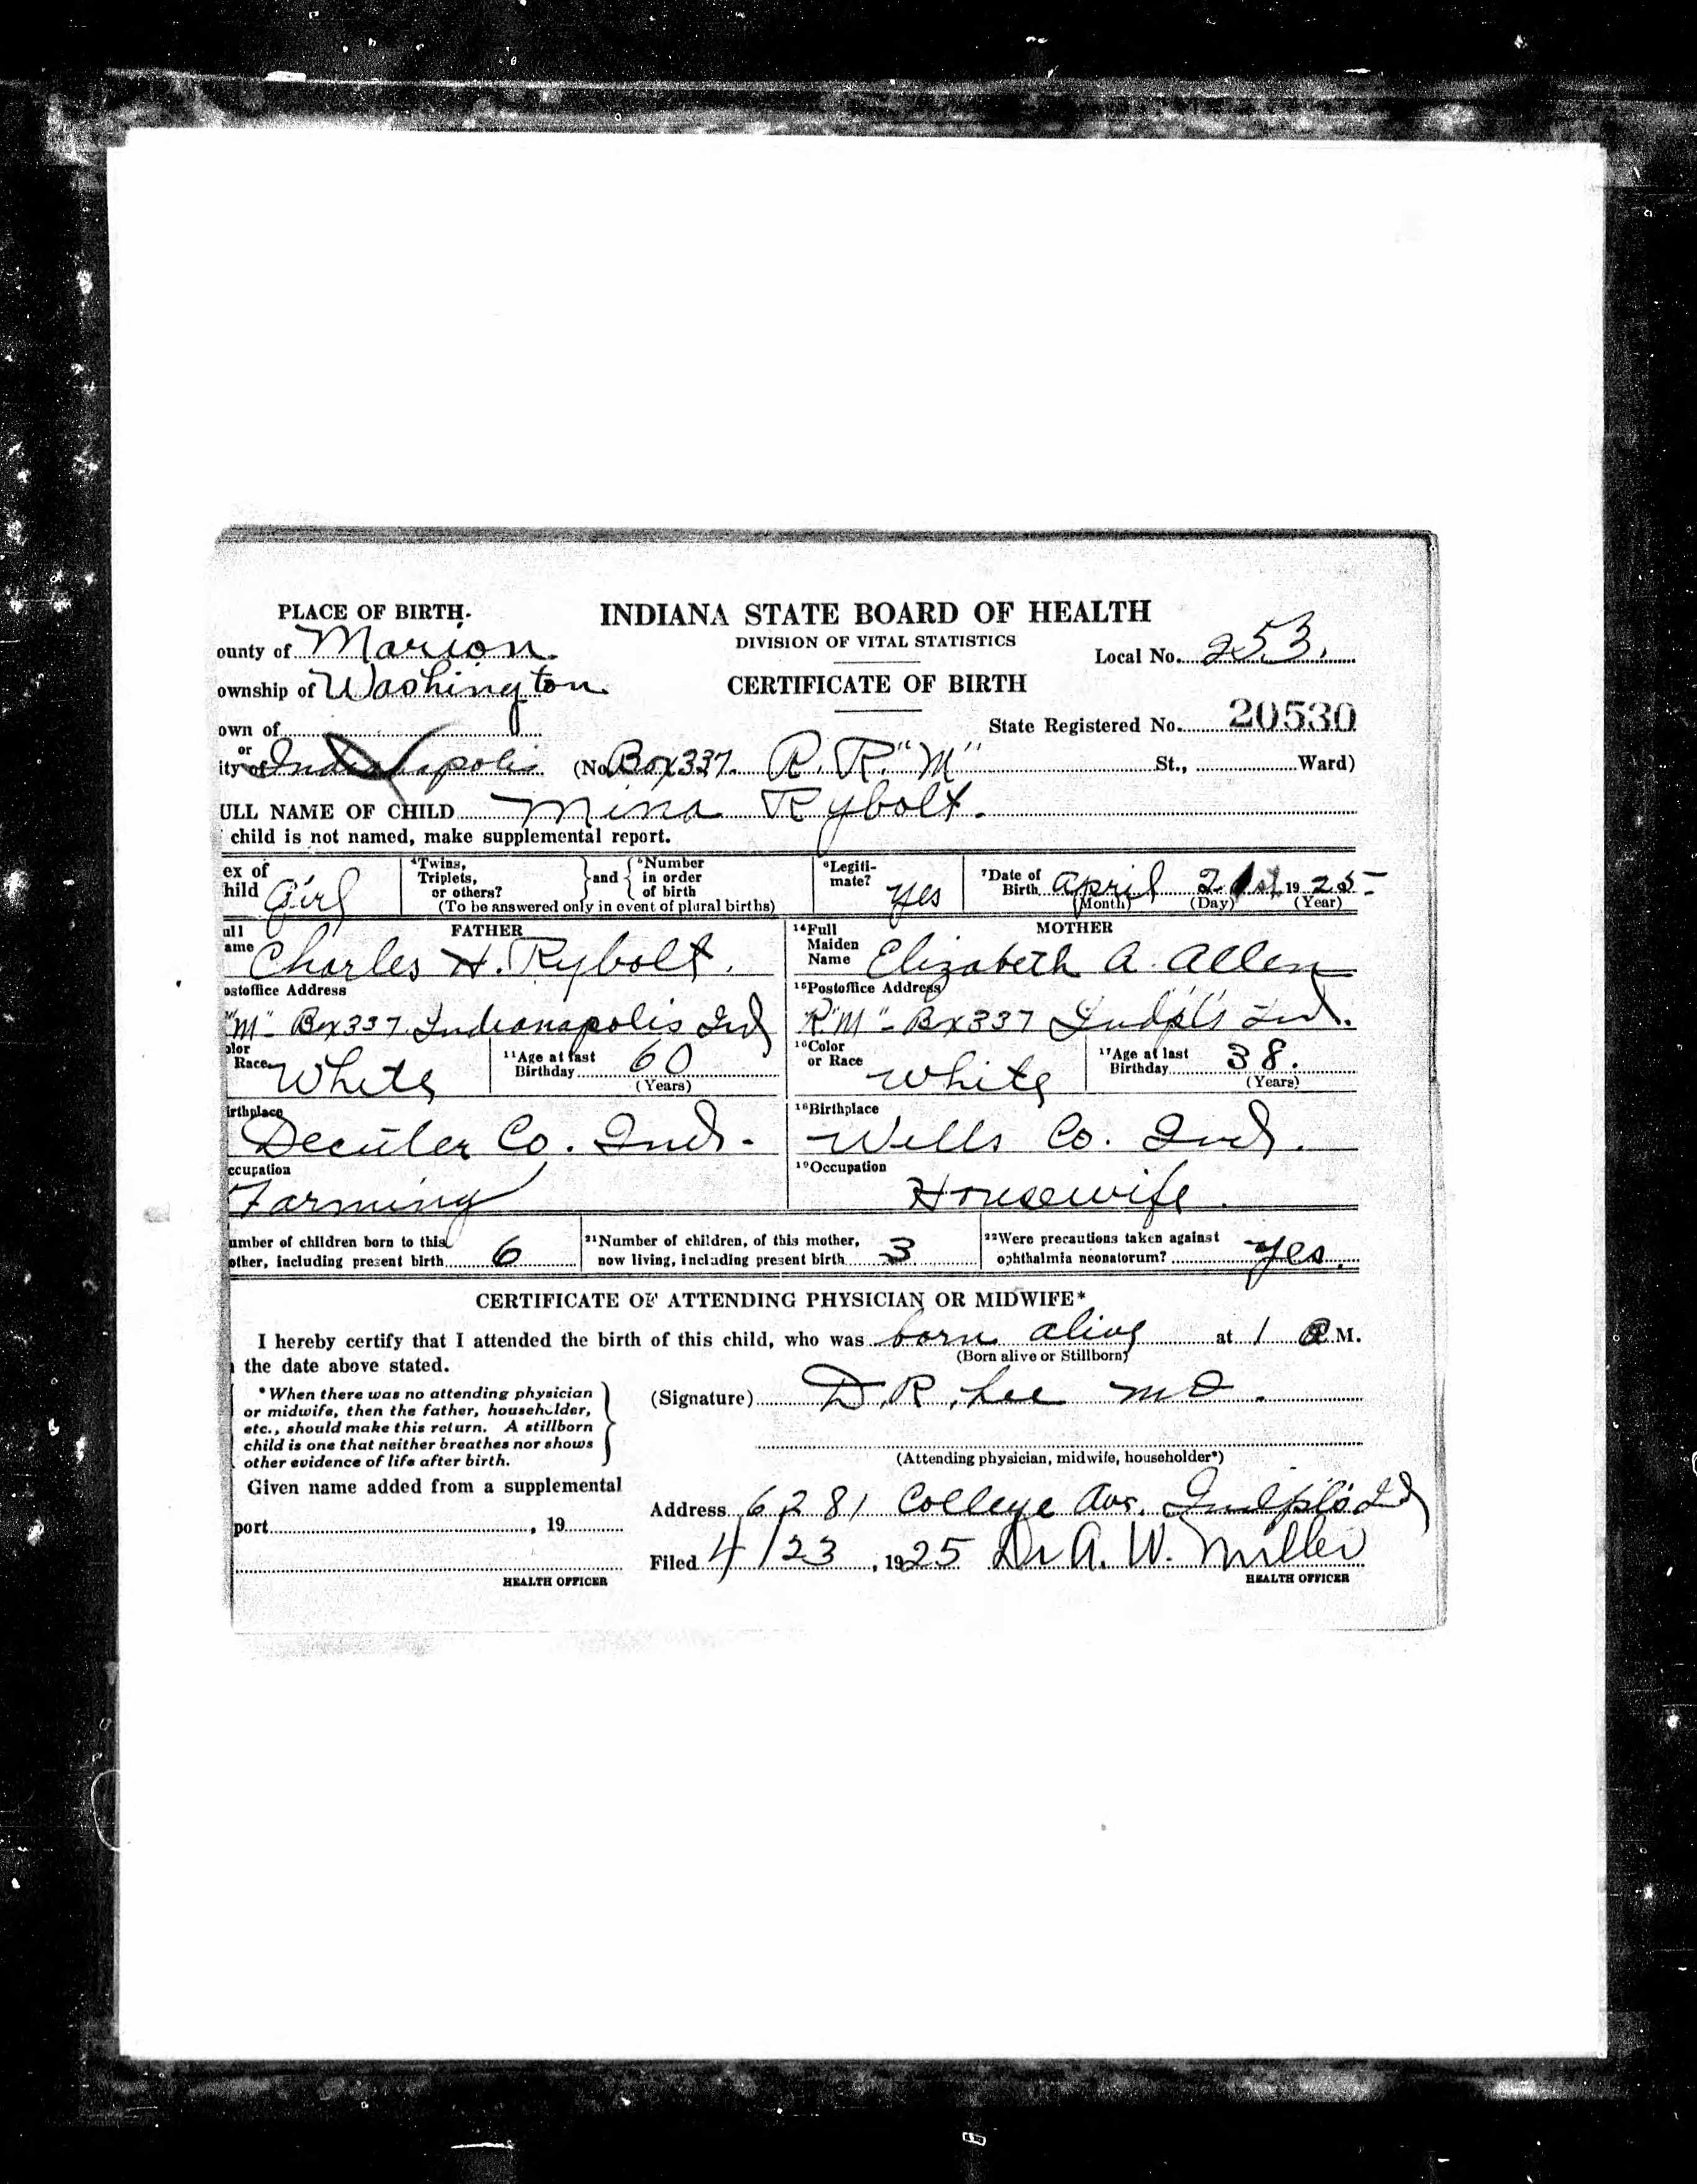 PLACE OF BIRTH.
INDIANA STATE BOARD OF HEALTH
ounty of Marion
DIVISION OF VITAL STATISTICS
Local No. 253.
ownship of Washington
CERTIFICATE OF BIRTH
own of
State Registered No. 20530
or
ity of Indianapolis (No. Box 337. R. R. "M" St., Ward)
ULL NAME OF CHILD Mina Rybolt.
child is not named, make supplemental report.
ex of hild Girl
4Twins, Triplets, or others? and 5Number in order of birth
(To be answered only in event of plural births)
6Legiti-mate? yes
7Date of Birth April 21st 1925
(Month) (Day) (Year)
FATHER
ull ame Charles H. Rybolt.
MOTHER
14Full Maiden Name Elizabeth A. Allen
ostoffice Address
"M" - Box 337 Indianapolis Ind
15Postoffice Address
R "M" - Bx 337 Indpl's Ind.
olor Race White
11Age at last Birthday 60
(Years)
16Color or Race White
17Age at last Birthday 38.
(Years)
irthplace
Co. Ind.
18Birthplace
Wells Co. Ind.
ccupation
Farming
19Occupation
Housewife.
umber of children born to this
other, including present birth 6
21Number of children, of this mother,
now living, including present birth 3
22Were precautions taken against
ophthalmia neonatorum? yes.
CERTIFICATE OF ATTENDING PHYSICIAN OR MIDWIFE*
I hereby certify that I attended the birth of this child, who was born alive at 1 M.
(Born alive or Stillborn)
the date above stated.
*When there was no attending physician
or midwife, then the father, householder,
etc., should make this return. A stillborn
child is one that neither breathes nor shows
other evidence of life after birth.
(Signature) D. R. Lee MD.
(Attending physician, midwife, householder*)
Given name added from a supplemental
port , 19
HEALTH OFFICER
Address 6281 College Ave. Indpls Ind
Filed 4/23, 1925 Dr A. W. Miller
HEALTH OFFICER